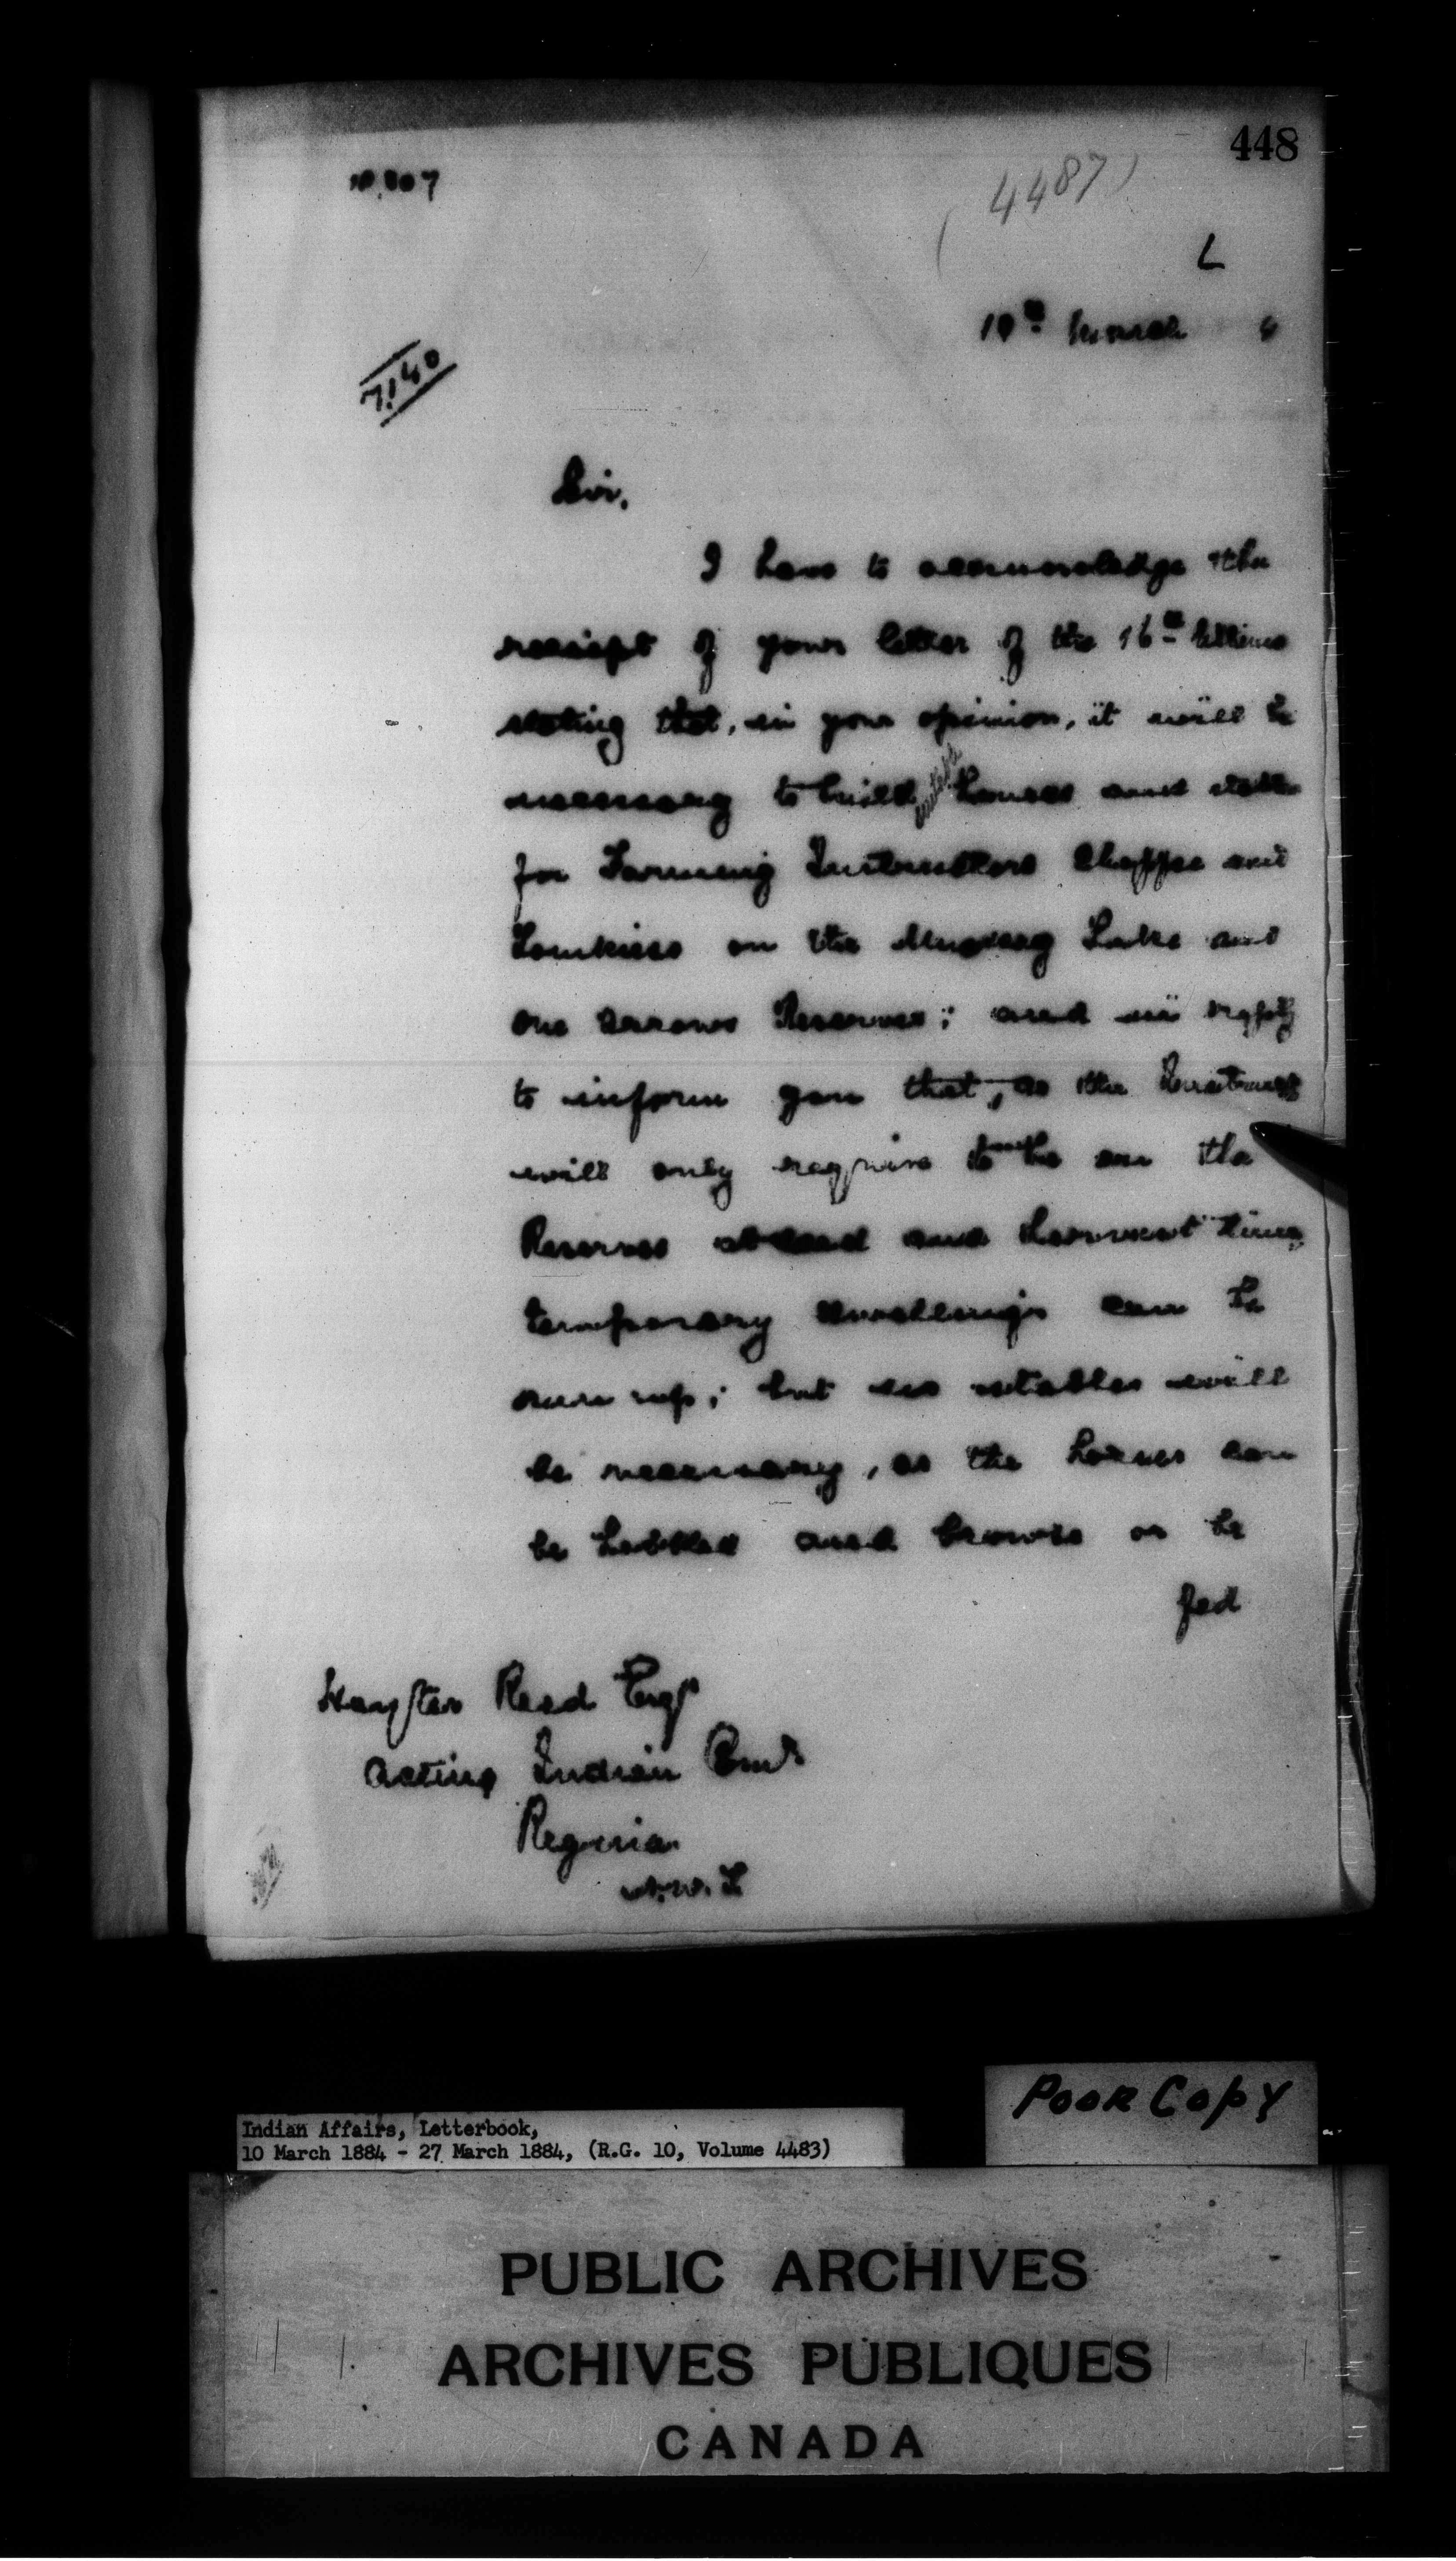 448
(4487)
L
19th March 4
7140
Sir,
I have to acknowledge the
receipt of your letter of the 16th Ultimo
stating that, in your opinion, it will be
necessary to build houses and stables
for Farming Instructors Chaffee and
Tomkins on the Muskeg Lake and
One Arrows Reserves; and in reply
to inform you that, as the Instructors
will only require to be on the
Reserves at seed and Harvest time,
temporary dwellings can be
run up; but no stables will
be necessary, as the horses can
be hobbled and browse or be
fed
Hayter Reed Esqr
Acting Indian Comr
Regina
N.W.T
Poor Copy
Indian Affairs, Letterbook,
10 March 1884 - 27 March 1884, (R.G. 10, Volume 4483)
PUBLIC ARCHIVES
ARCHIVES PUBLIQUES
CANADA